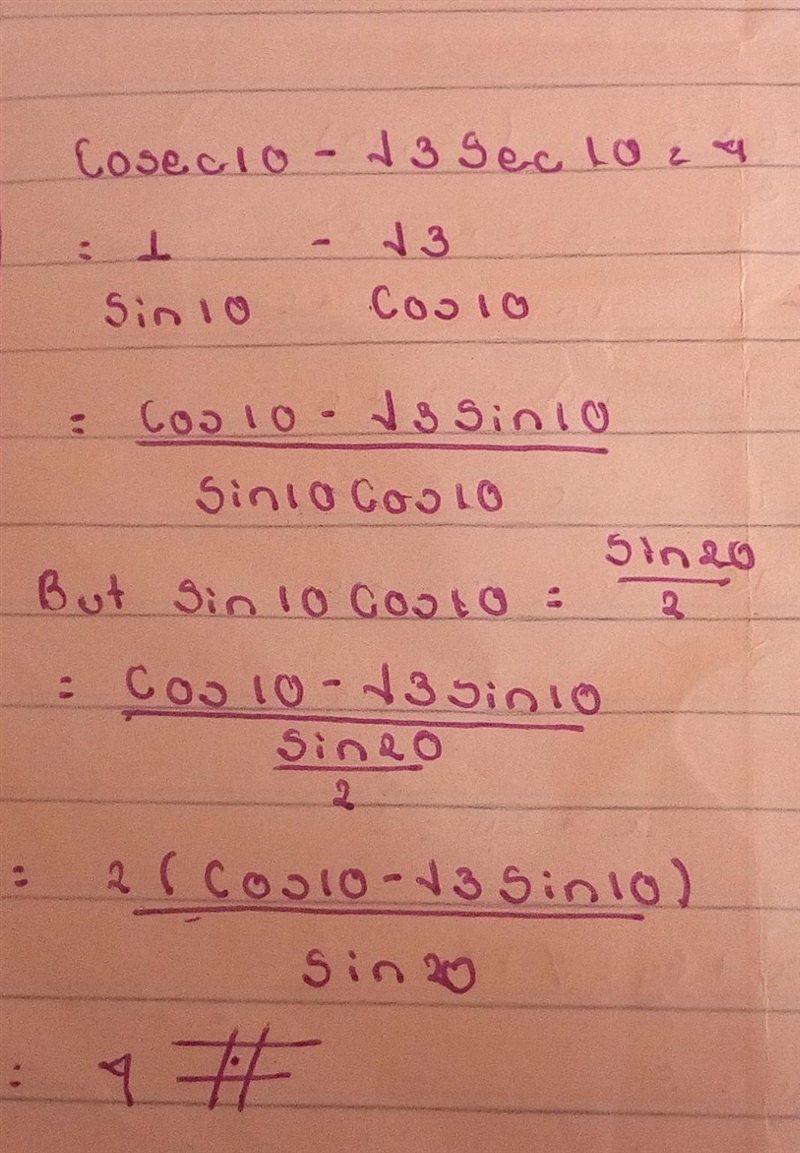 Cosec10 - √3 Sec 10 = 4
= 1 - √3
Sin10 Cos10
= Cos10 - √3 Sin10
Sin10 Cos10
But Sin10 Cos10 = Sin20
2
= Cos10 - √3 Sin10
Sin20
2
= 2 (Cos10 - √3 Sin10)
Sin20
= 4 #